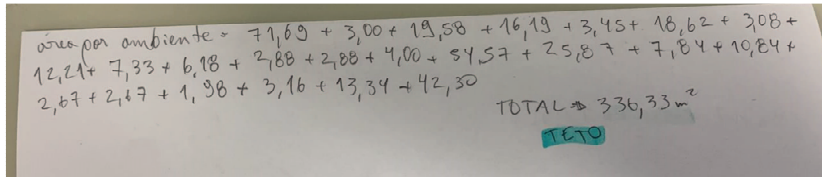 área por ambiente = 71,69 + 3,00 + 19,58 + 16,19 + 3,45 + 18,62 + 3,08 +
12,21 + 7,33 + 6,18 + 2,88 + 2,88 + 4,00 + 54,57 + 25,87 + 7,84 + 10,84 +
2,67 + 2,67 + 1,98 + 3,16 + 13,34 + 42,30
TOTAL → 336,33 m²
TETO